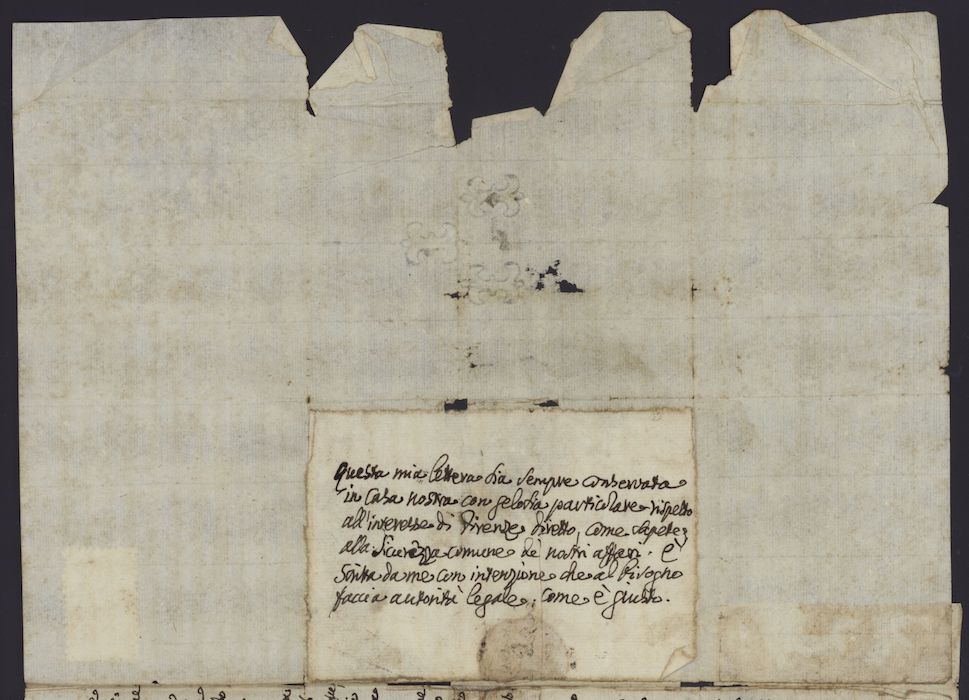 Questa mia lettera sia sempre conservata
in Casa nostra con gelosia particolare rispetto
all'interesse di Firenze diretto, come sapete,
alla Sicurezza comune de nostri affari. È
Scritta da me con intenzione che al bisogno
faccia autorità legale, come è giusto.